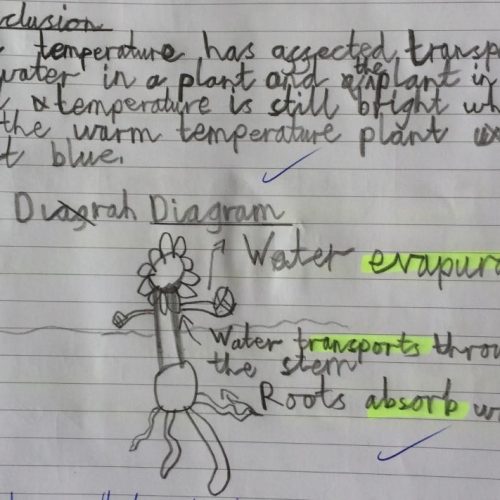 clusion
temperature has affected transp
water in a plant and the plant in
temperature is still bright wh
the warm temperature plant
t blue.
Diagrah Diagram
Water evapura
Water transports throu
the stem
Roots absorb w